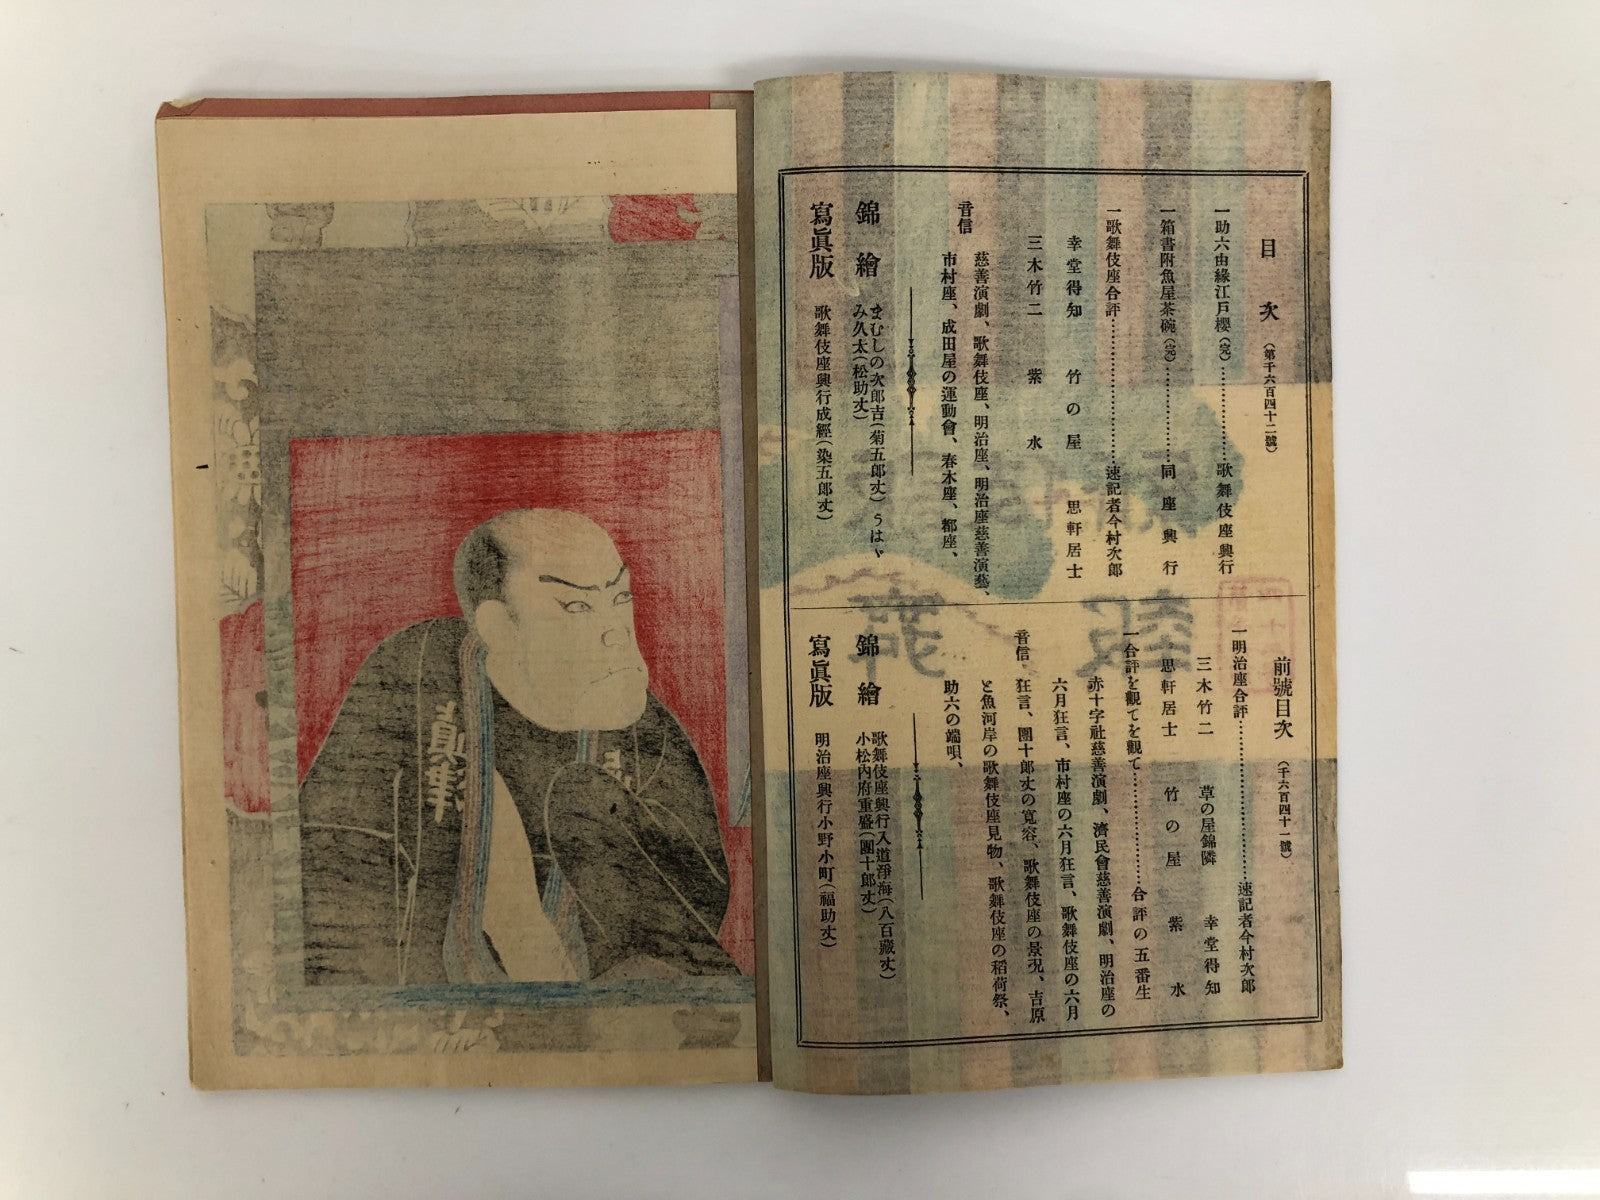 目次（第千六百四十二號）
一助六由緣江戸櫻（完）………………歌舞伎座興行
一箱書附魚屋茶碗（完）………………同座興行
一歌舞伎座合評………………速記者今村次郎
幸堂得知　竹の屋　思軒居士
三木竹二　紫水
音信
慈善演劇、歌舞伎座、明治座、明治座慈善演藝、
市村座、成田屋の運動會、春木座、都座、
錦繪
まむしの次郎吉（菊五郎丈）うはゞ
み久太（松助丈）
寫眞版
歌舞伎座興行成經（染五郎丈）
前號目次（千六百四十一號）
一明治座合評………………速記者今村次郎
三木竹二　草の屋錦隣　幸堂得知
思軒居士　竹の屋　紫水
一合評を觀てを觀て………………合評の五番生
音信
赤十字社慈善演劇、濟民會慈善演劇、明治座の
六月狂言、市村座の六月狂言、歌舞伎座の六月
狂言、團十郎丈の寬容、歌舞伎座の景況、吉原
と魚河岸の歌舞伎座見物、歌舞伎座の稻荷祭、
助六の端唄、
錦繪
歌舞伎座興行入道淨海（八百藏丈）
小松內府重盛（團十郎丈）
寫眞版
明治座興行小野小町（福助丈）